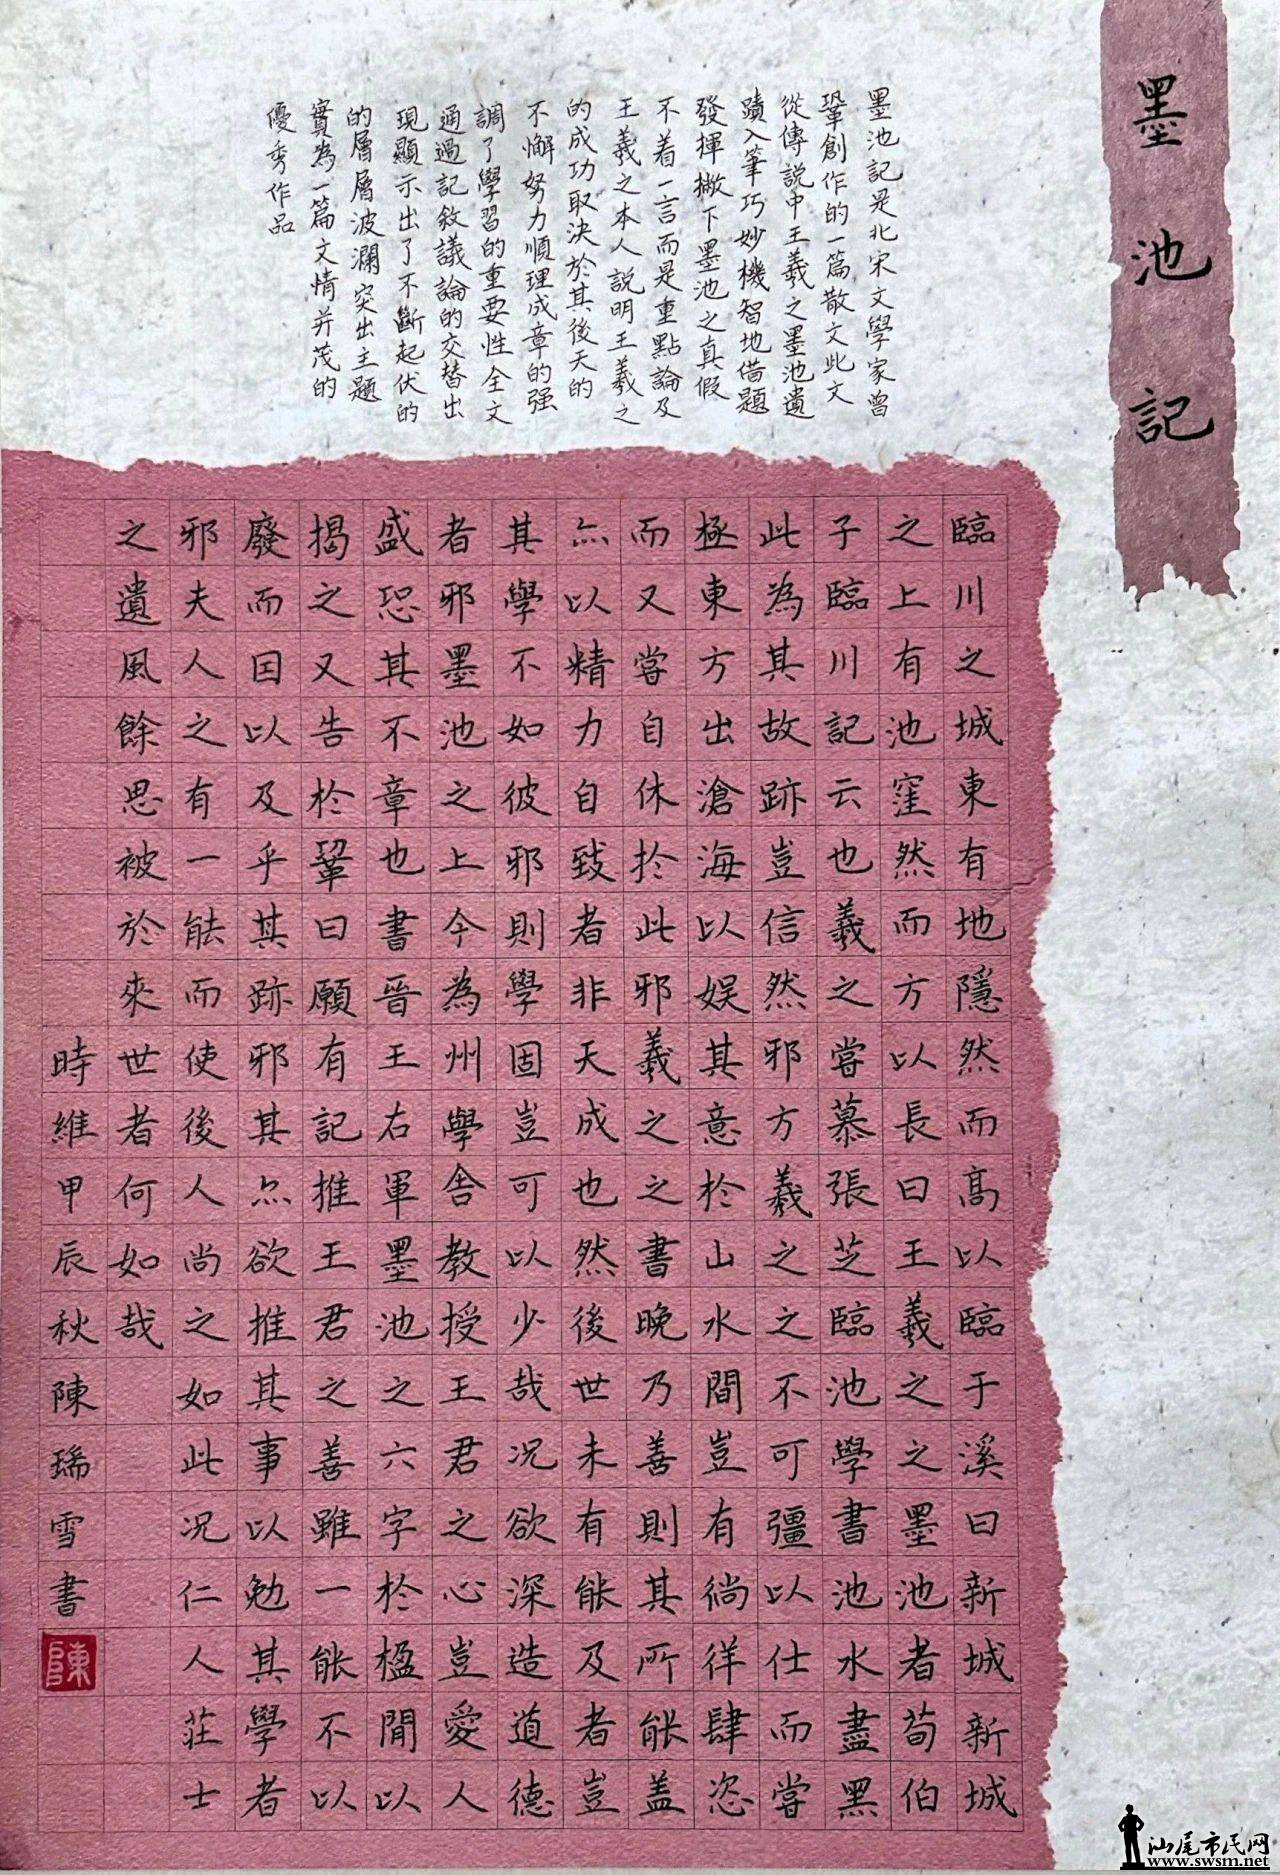 墨池記
墨池記是北宋文學家曾
鞏創作的一篇散文此文
從傳説中王羲之墨池遺
蹟入筆巧妙機智地借題
發揮撇下墨池之真假
不着一言而是重點論及
王羲之本人説明王羲之
的成功取決於其後天的
不懈努力順理成章的强
調了學習的重要性全文
通過記敘議論的交替出
現顯示出了不斷起伏的
的層層波瀾突出主題
實為一篇文情并茂的
優秀作品
臨川之城東有地隱然而高以臨于溪曰新城新城
之上有池窪然而方以長曰王羲之之墨池者荀伯
子臨川記云也羲之嘗慕張芝臨池學書池水盡黑
此為其故跡豈信然邪方羲之之不可彊以仕而嘗
極東方出滄海以娱其意於山水間豈有徜徉肆恣
而又嘗自休於此邪羲之之書晚乃善則其所能蓋
亦以精力自致者非天成也然後世未有能及者豈
其學不如彼邪則學固豈可以少哉况欲深造道德
者邪墨池之上今為州學舍教授王君之心豈愛人
盛恐其不章也書晉王右軍墨池之六字於楹間以
揭之又告於鞏曰願有記推王君之善雖一能不以
廢而因以及乎其跡邪其亦欲推其事以勉其學者
邪夫人之有一能而使後人尚之如此况仁人莊士
之遺風餘思被於來世者何如哉
時維甲辰秋陳瑞雪書
陳
汕尾市民网
www.swsm.net